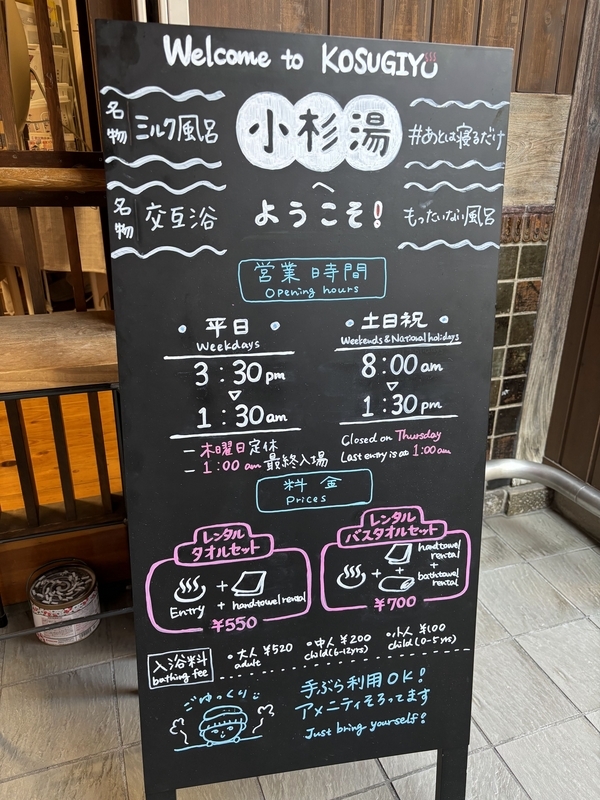 Welcome to KOSUGIYU
名物 ミルク風呂
小杉湯
#あとは寝るだけ
名物 交互浴
へ
ようこそ!
もったいない風呂
営業時間
Opening hours
平日
Weekdays
3:30pm
▽
1:30am
土日祝
Weekends & National holidays
8:00am
▽
1:30pm
— 木曜日定休
— 1:00am 最終入場
Closed on Thursday
Last entry is at 1:00am
料金
Prices
レンタル
タオルセット
Entry
+
+ handtowel rental
¥550
レンタル
バスタオルセット
+ + handtowel rental
+
bathtowel rental
¥700
入浴料
bathing fee
・大人 ¥520
adult
・中人 ¥200
child(6-12yrs)
・小人 ¥100
child(0-5yrs)
ごゆっくり
手ぶら利用OK!
アメニティそろってます
Just bring yourself!